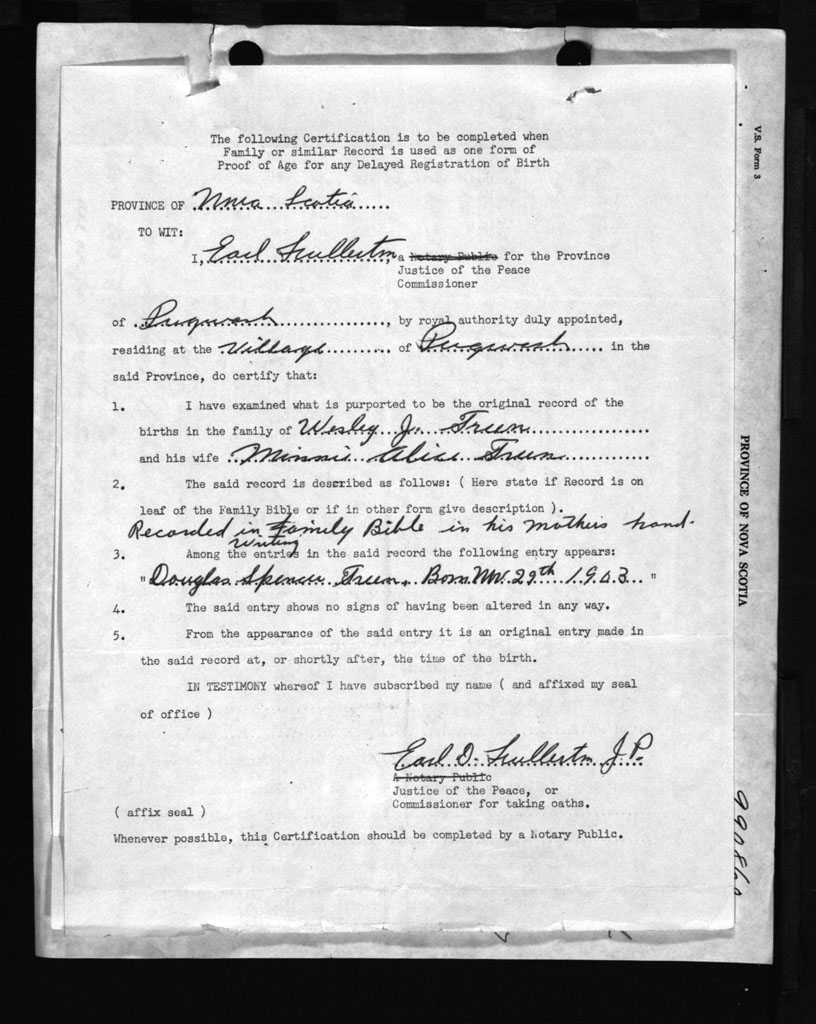 The following Certification is to be completed when
Family or similar Record is used as one form of
Proof of Age for any Delayed Registration of Birth
PROVINCE OF Nova Scotia
TO WIT:
I, Earl Fullerton, a Notary Public for the Province
Justice of the Peace
Commissioner
of Pugwash, by royal authority duly appointed,
residing at the Village of Pugwash in the
said Province, do certify that:
1. I have examined what is purported to be the original record of the
births in the family of Wesley J. Treen
and his wife Minnie Alice Treen
2. The said record is described as follows: ( Here state if Record is on
leaf of the Family Bible or if in other form give description ).
Recorded in Family Bible in his mothers hand-
writing
3. Among the entries in the said record the following entry appears:
"Douglas Spencer Treen. Born Nov. 29th 1903 "
4. The said entry shows no signs of having been altered in any way.
5. From the appearance of the said entry it is an original entry made in
the said record at, or shortly after, the time of the birth.
IN TESTIMONY whereof I have subscribed my name ( and affixed my seal
of office )
Earl D. Fullerton J.P.
A Notary Public
Justice of the Peace, or
Commissioner for taking oaths.
( affix seal )
Whenever possible, this Certification should be completed by a Notary Public.
V.S. Form 3
PROVINCE OF NOVA SCOTIA